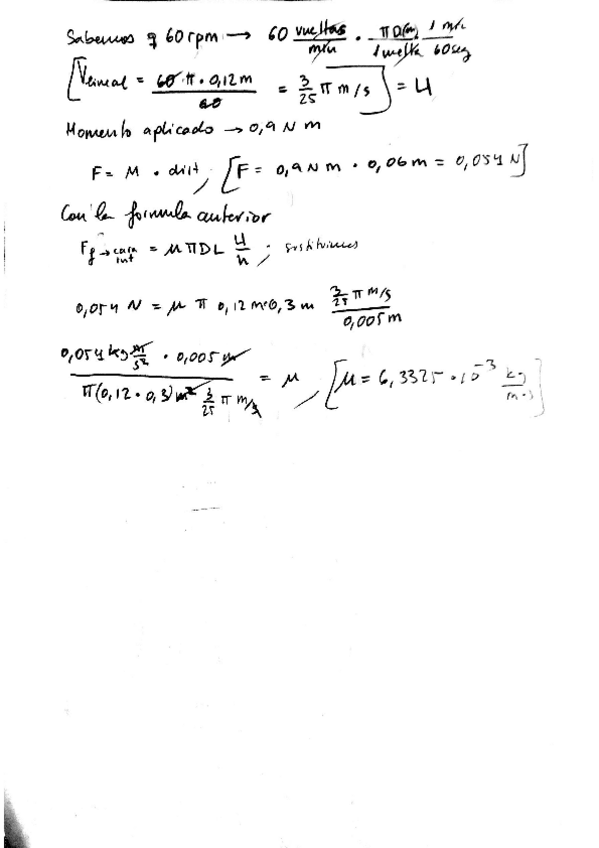 Sabemos q 60 rpm → 60 vueltas/min · πD(m)/1 vuelta · 1 min/60 seg
[Vlineal = 60 · π · 0,12 m / 60 = 3/25 π m/s] = U
Momento aplicado → 0,9 N m
F = M · dist, [F = 0,9 N m · 0,06 m = 0,054 N]
Con la formula anterior
Ff → cara int = μ π D L U/h ; sustituimos
0,054 N = μ π 0,12 m · 0,3 m (3/25 π m/s)/(0,005 m)
(0,054 kg m/s² · 0,005 m)/(π(0,12 · 0,3) m² 3/25 π m/s) = μ , [μ = 6,3325 · 10⁻³ kg/m·s]